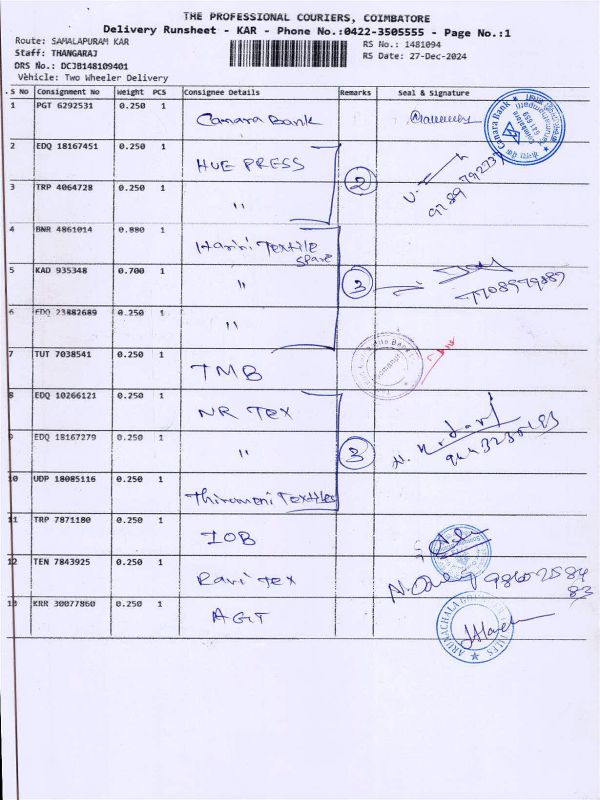 THE PROFESSIONAL COURIERS, COIMBATORE
Delivery Runsheet - KAR - Phone No.:0422-3505555 - Page No.:1
Route: SAMALAPURAM KAR
RS No.: 1481094
Staff: THANGARAJ
RS Date: 27-Dec-2024
DRS No.: DCJB148109401
Vehicle: Two Wheeler Delivery
S No Consignment No Weight PCS Consignee Details Remarks Seal & Signature
1 PGT 6292531 0.250 1 Canara Bank
Canara Bank
2 EDQ 18167451 0.250 1 HUE PRESS
2
3 TRP 4064728 0.250 1 "
4 BNR 4861014 0.880 1 Harini Textile
Spare
5 KAD 935348 0.700 1 " 3
6 EDQ 23882689 0.250 1 "
7 TUT 7038541 0.250 1 TMB
8 EDQ 10266121 0.250 1 NR Tex
9 EDQ 18167279 0.250 1 " 3
10 UDP 18085116 0.250 1 Thirumoni Textiles
11 TRP 7871180 0.250 1 IOB
12 TEN 7843925 0.250 1 Ravi Tex
13 KRR 30077860 0.250 1 AGT